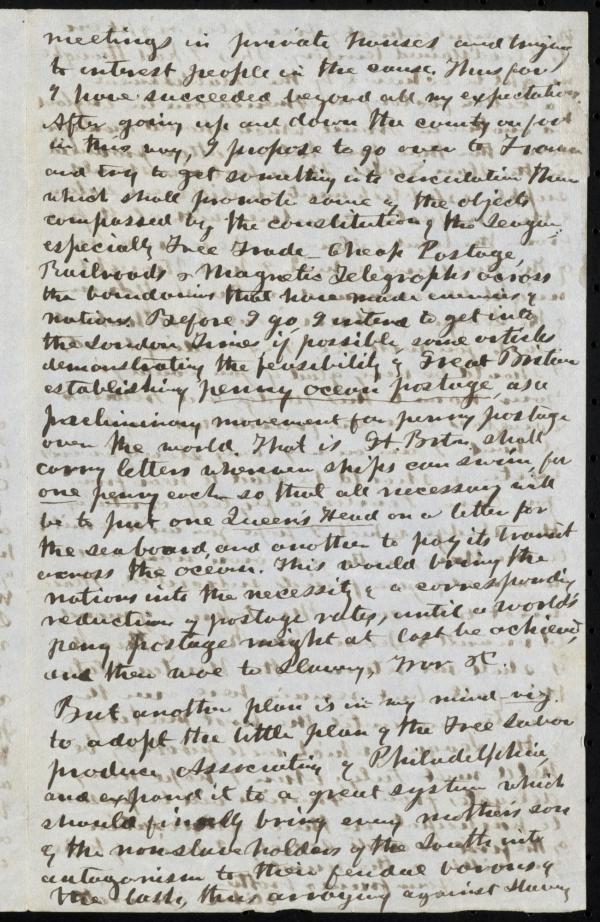 meetings in private houses and trying
to interest people in the cause. Thus far
I have succeeded beyond all my expectation.
After going up and down the country on foot
in this way, I propose to go over to France
and try to get something into circulation there
which shall promote some of the objects
compassed by the constitution of the League,
especially Free Trade - Cheap Postage,
Railroads & Magnetic Telegraphs across
the boundaries that have made enemies of
nations. Before I go I intend to get into
the London Times if possible some articles
demonstrating the feasibility of Great Britain
establishing penny ocean postage, as a
preliminary movement for penny postage
over the world. That is Gt. Britn. shall
carry letters wherever ships can swim, for
one penny each so that all necessary will
be to put one Queen's Head on a letter for
the seaboard, and another to pay its transit
across the ocean. This would bring the
nations into the necessity of a corresponding
reduction of postage rates, until a world's
penny postage might at last be achieved,
and then woe to Slavery, War &c.
But another plan is in my mind viz.
to adopt the little plan of the Free Labor
produce Association of Philadelphia,
and expand it to a great system which
should finally bring every mother's son
of the non-slaveholders of the South into
antagonism to their feudal barons of
the lash, thus arraying against slavery